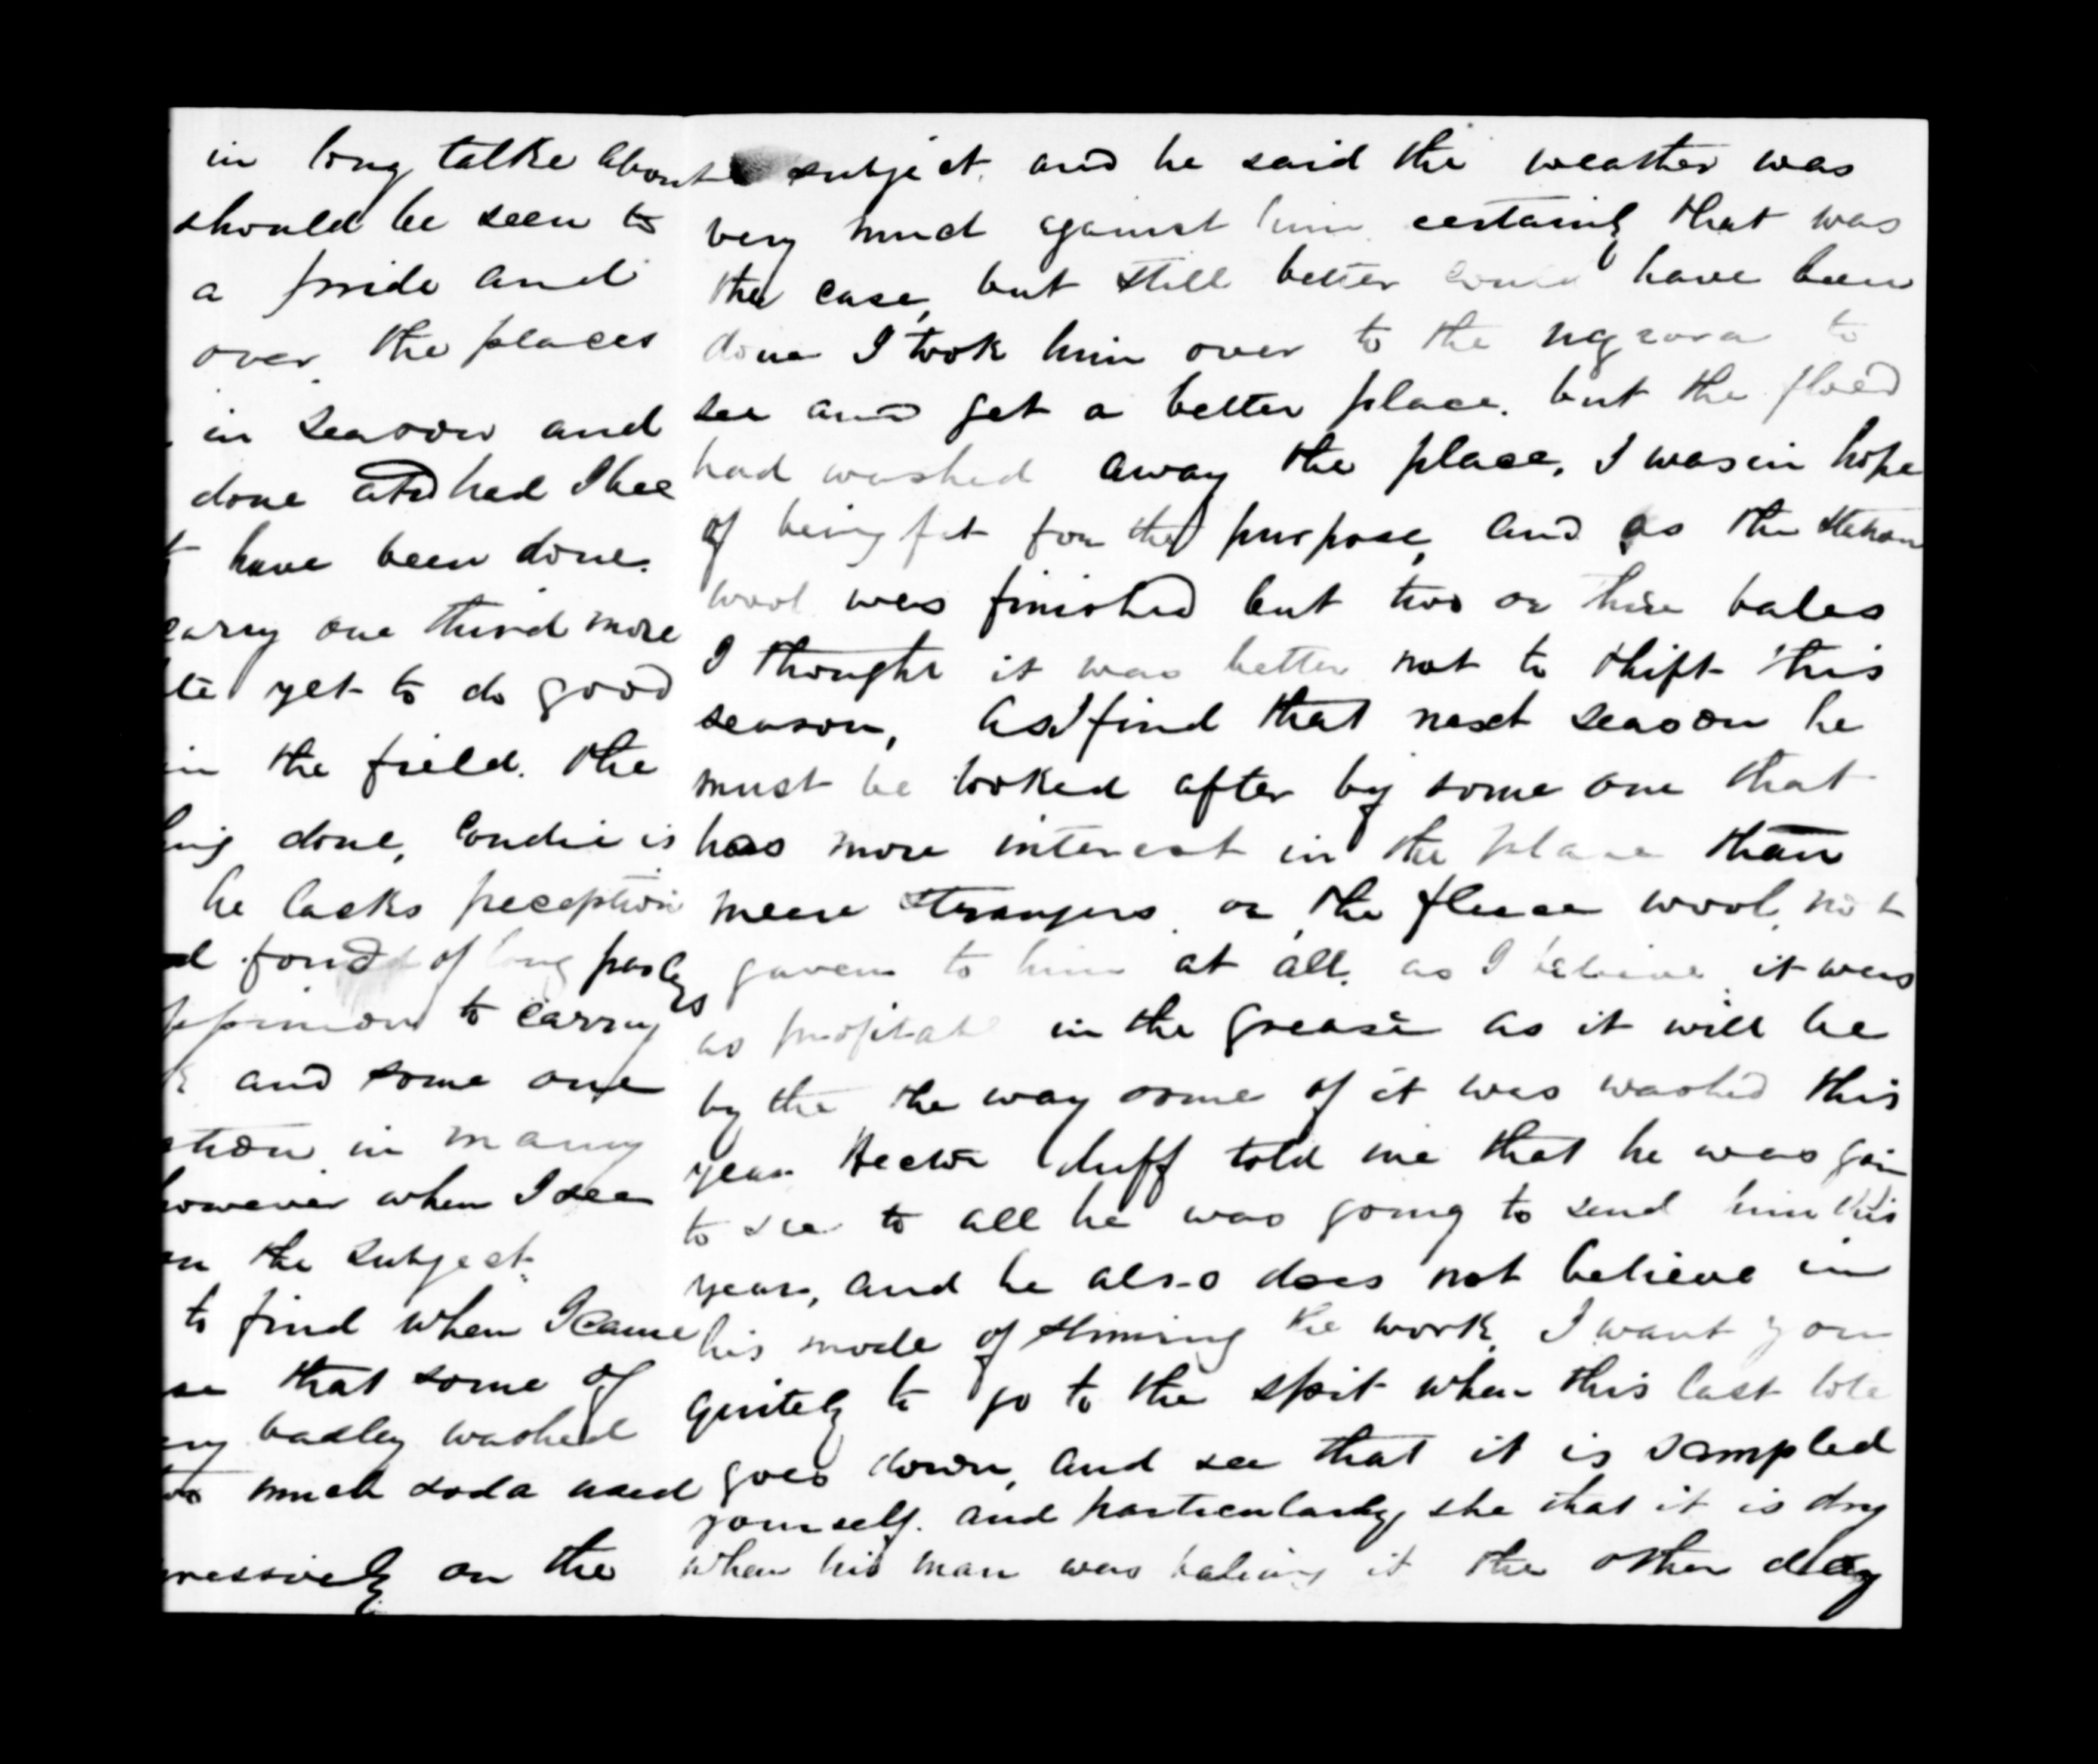 in long talke about
should be seen to
a pride and
over the places
in season and
done and had I bee
have been done.
carry one third more
yet to do good
in the field. the
done, Condie is
he lacks preception
fond of long parleys
oppinion to carry
and some one
in many
however when I see
on the subject.
to find when I came
that some of
badley washed
much soda used
on the
subject. and he said the weather was
very much against him certainly that was
the case, but still better could have been
done I took him over to the ngrora to
see and get a better place. but the floed
had washed away the place, I was in hope
of being fit for the purpose, and as the station
wool was finished but two or three bales
I thought it was better not to shift this
season, as I find that next season he
must be looked after by some one that
has more interest in the place than
meere strangers or the fleece wool, not
gaven to him at all. as I believe it was
as profitabl in the grease as it will be
by the the way some of it was washed this
year Hector duff told me that he was goin
to see to all he was going to send him this
year, and he also does not believe in
his mode of the work, I want you
quitely to go to the spit when this last lote
goes down, and see that it is sampled
yourself. and particularly, she that it is dry
when his man was baleing it the other day